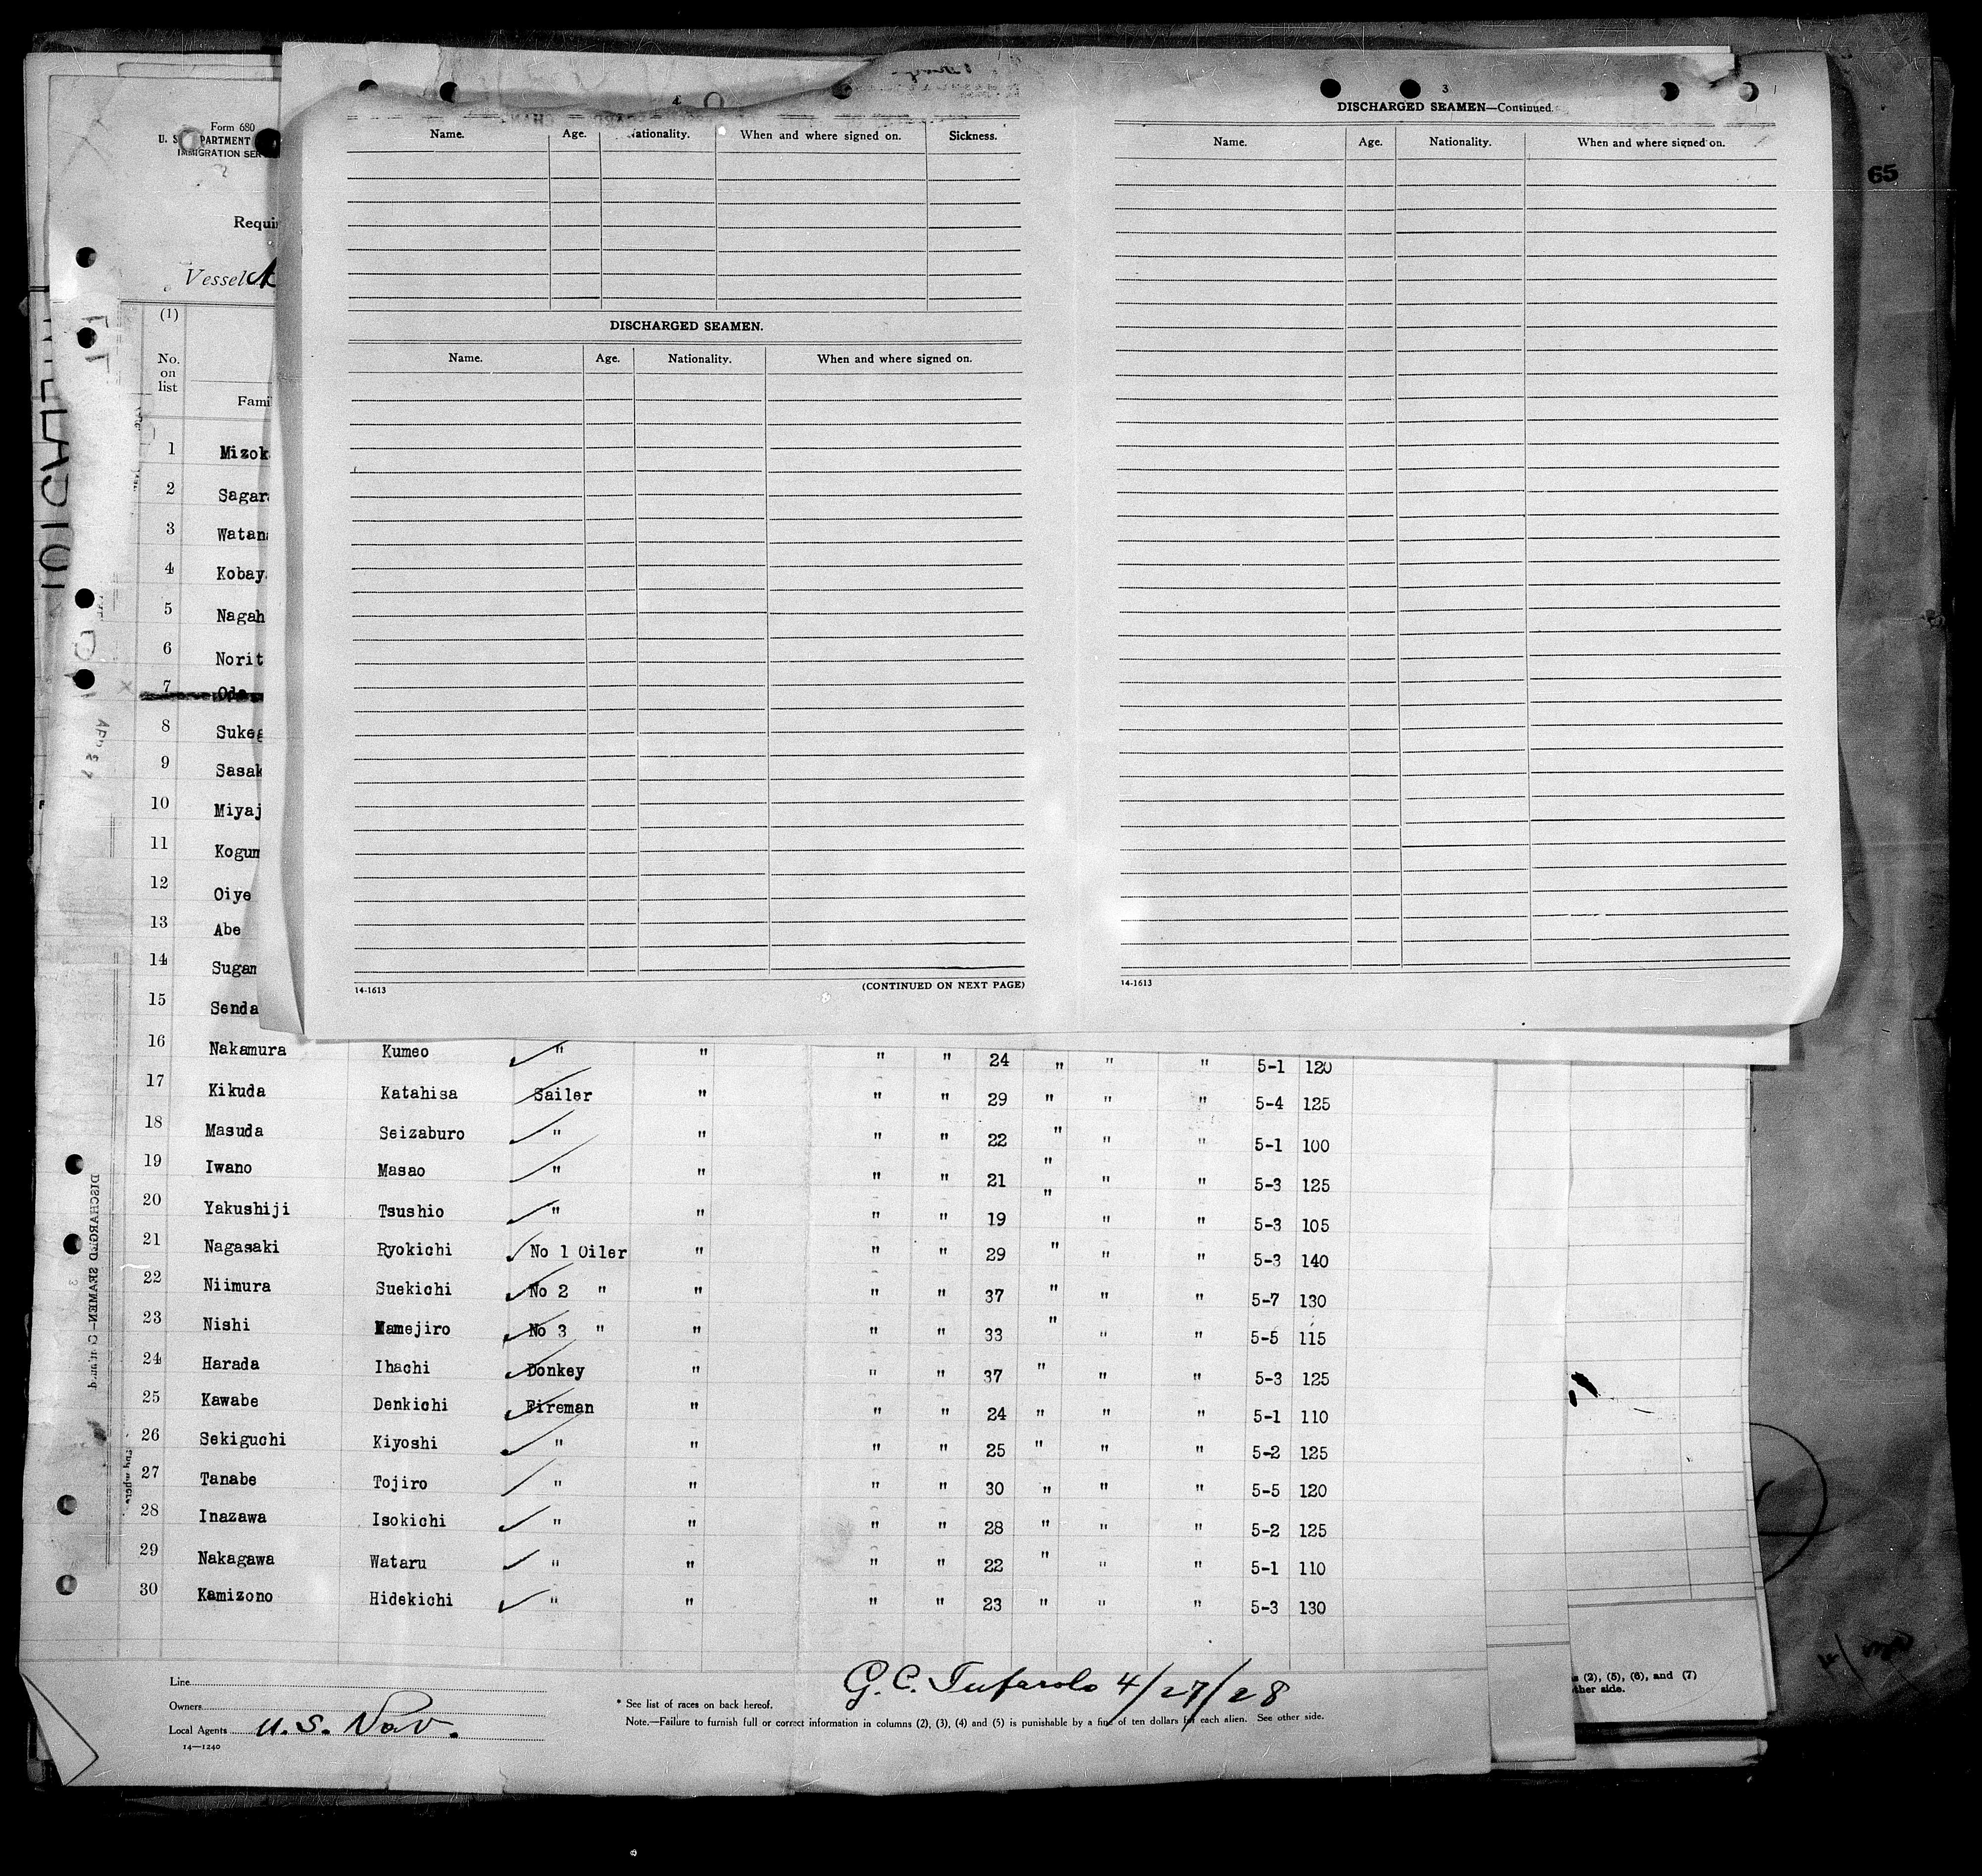 65
Form 680
U. S. DEPARTMENT
IMMIGRATION SER
Requi
Vessel
(1)
No. on list
Fami
1 Mizok
2 Sagar
3 Watan
4 Kobay
5 Nagah
6 Norit
7 Oda
8 Sukeg
9 Sasak
10 Miyaj
11 Kogum
12 Oiye
13 Abe
14 Sugan
15 Senda
4
Name. Age. Nationality. When and where signed on. Sickness.
DISCHARGED SEAMEN.
Name. Age. Nationality. When and where signed on.
14-1613 (CONTINUED ON NEXT PAGE)
3
DISCHARGED SEAMEN—Continued.
Name. Age. Nationality. When and where signed on.
14-1613
16 Nakamura Kumeo " " " " 24 " " " 5-1 120
17 Kikuda Katahisa Sailer " " " 29 " " " 5-4 125
18 Masuda Seizaburo " " " " 22 " " " 5-1 100
19 Iwano Masao " " " " 21 " " " 5-3 125
20 Yakushiji Tsushio " " " " 19 " " " 5-3 105
21 Nagasaki Ryokichi No 1 Oiler " " " 29 " " " 5-3 140
22 Niimura Suekichi No 2 " " " " 37 " " " 5-7 130
23 Nishi Mamejiro No 3 " " " " 33 " " " 5-5 115
24 Harada Ihachi Donkey " " " 37 " " " 5-3 125
25 Kawabe Denkichi Fireman " " " 24 " " " 5-1 110
26 Sekiguchi Kiyoshi " " " " 25 " " " 5-2 125
27 Tanabe Tojiro " " " " 30 " " " 5-5 120
28 Inazawa Isokichi " " " " 28 " " " 5-2 125
29 Nakagawa Wataru " " " " 22 " " " 5-1 110
30 Kamizono Hidekichi " " " " 23 " " " 5-3 130
DISCHARGED SEAMEN—Continued
Line
Owners
Local Agents U.S. Nav.
14—1240
G. C. Tufarolo 4/27/28
* See list of races on back hereof.
Note.—Failure to furnish full or correct information in columns (2), (3), (4) and (5) is punishable by a fine of ten dollars for each alien. See other side.
s (2), (5), (6), and (7)
ther side.